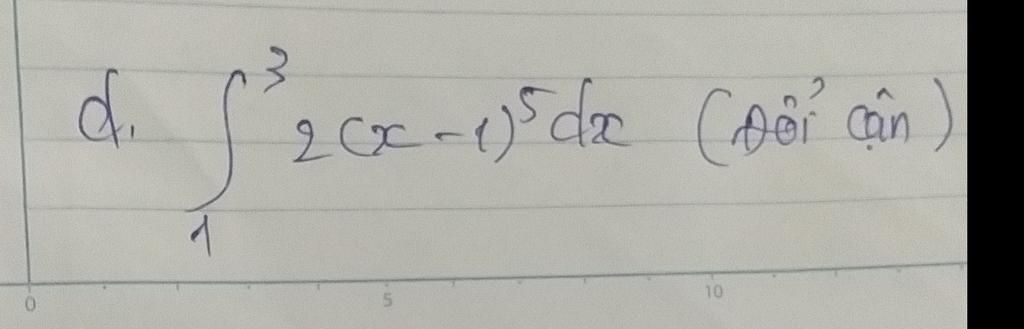 d. ∫₁³ 2(x-1)⁵dx (Đổi cận)
0 5 10